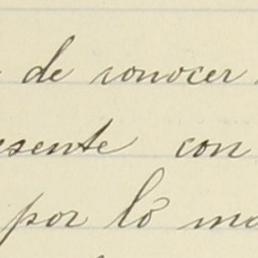 de conocer
esente con
por lo ma